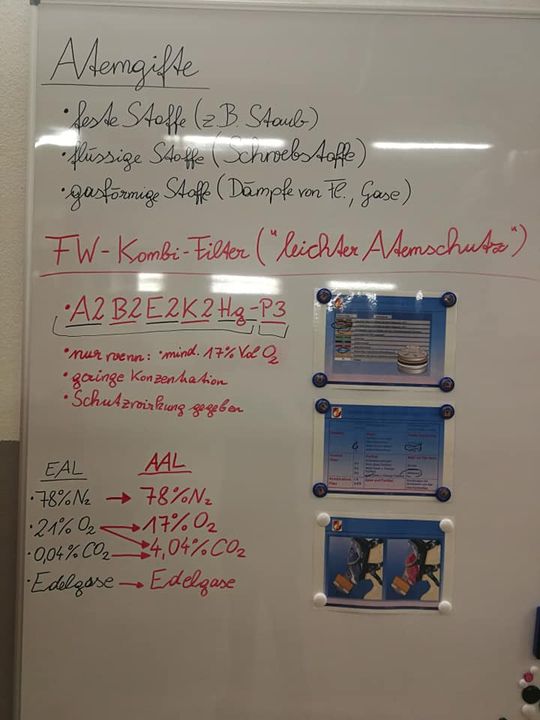 Atemgifte
• feste Stoffe (z.B. Staub)
• flüssige Stoffe (Schwebstoffe)
• gasförmige Stoffe (Dämpfe von Fl., Gase)
FW-Kombi-Filter ("leichter Atemschutz")
• A2B2E2K2Hg-P3
• nur wenn: • mind. 17% Vol O₂
• geringe Konzentration
• Schutzwirkung gegeben
EAL AAL
• 78% N₂ → 78% N₂
• 21% O₂ → 17% O₂
• 0,04% CO₂ → 4,04% CO₂
• Edelgase → Edelgase